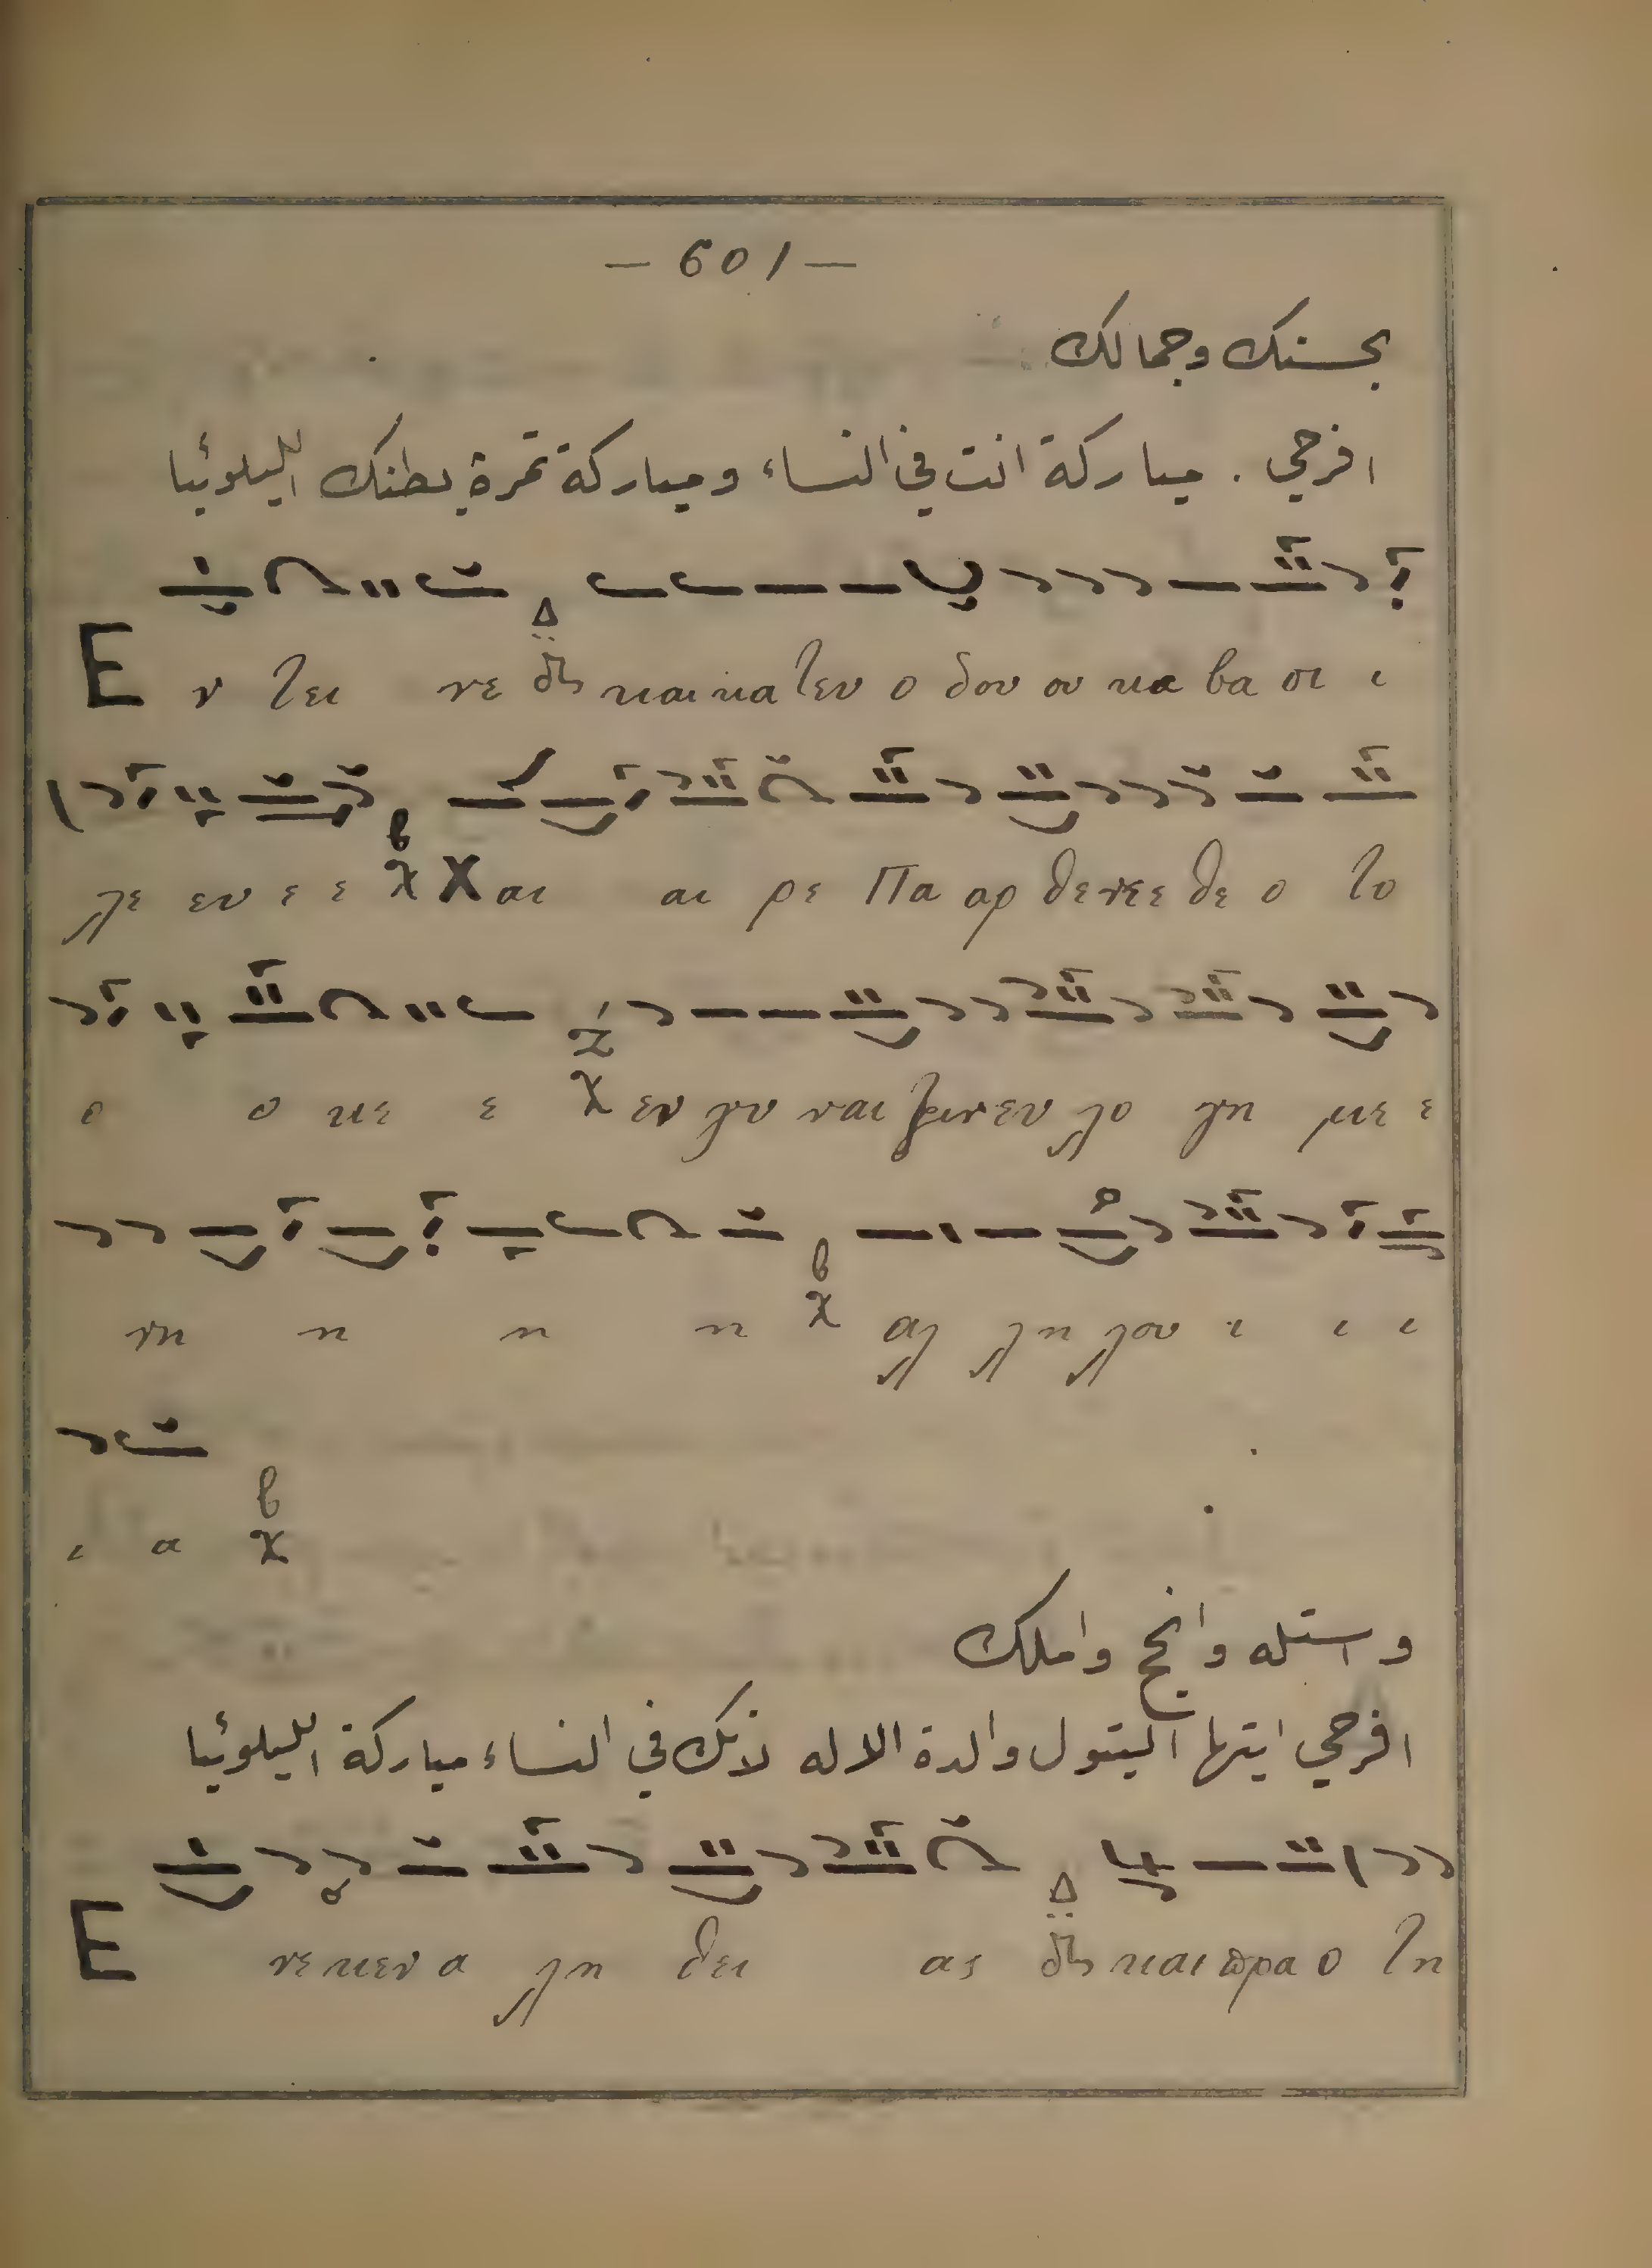 – 601 –
بحسنك وجمالك
افرحي . مباركة انت في النساء ومباركة ثمرة بطنك الليلوئيا
Ε ν τει νε και κα τευ ο δου ου κα βα σι ι
λε ευ ε ε Χαι αι ρε Πα αρ θε νεε θε ο το
ο ο κε ε εν γυ ναι ξιν ευ λο γη με ε
νη η η η αλ λη λου ι ι ι
ι α
واستله وانجح واملك
افرحي ايتها البتول والدة الاله لانك في النساء مباركة الليلوئيا
Ε νε κεν α λη θει ας και πρα ο τη